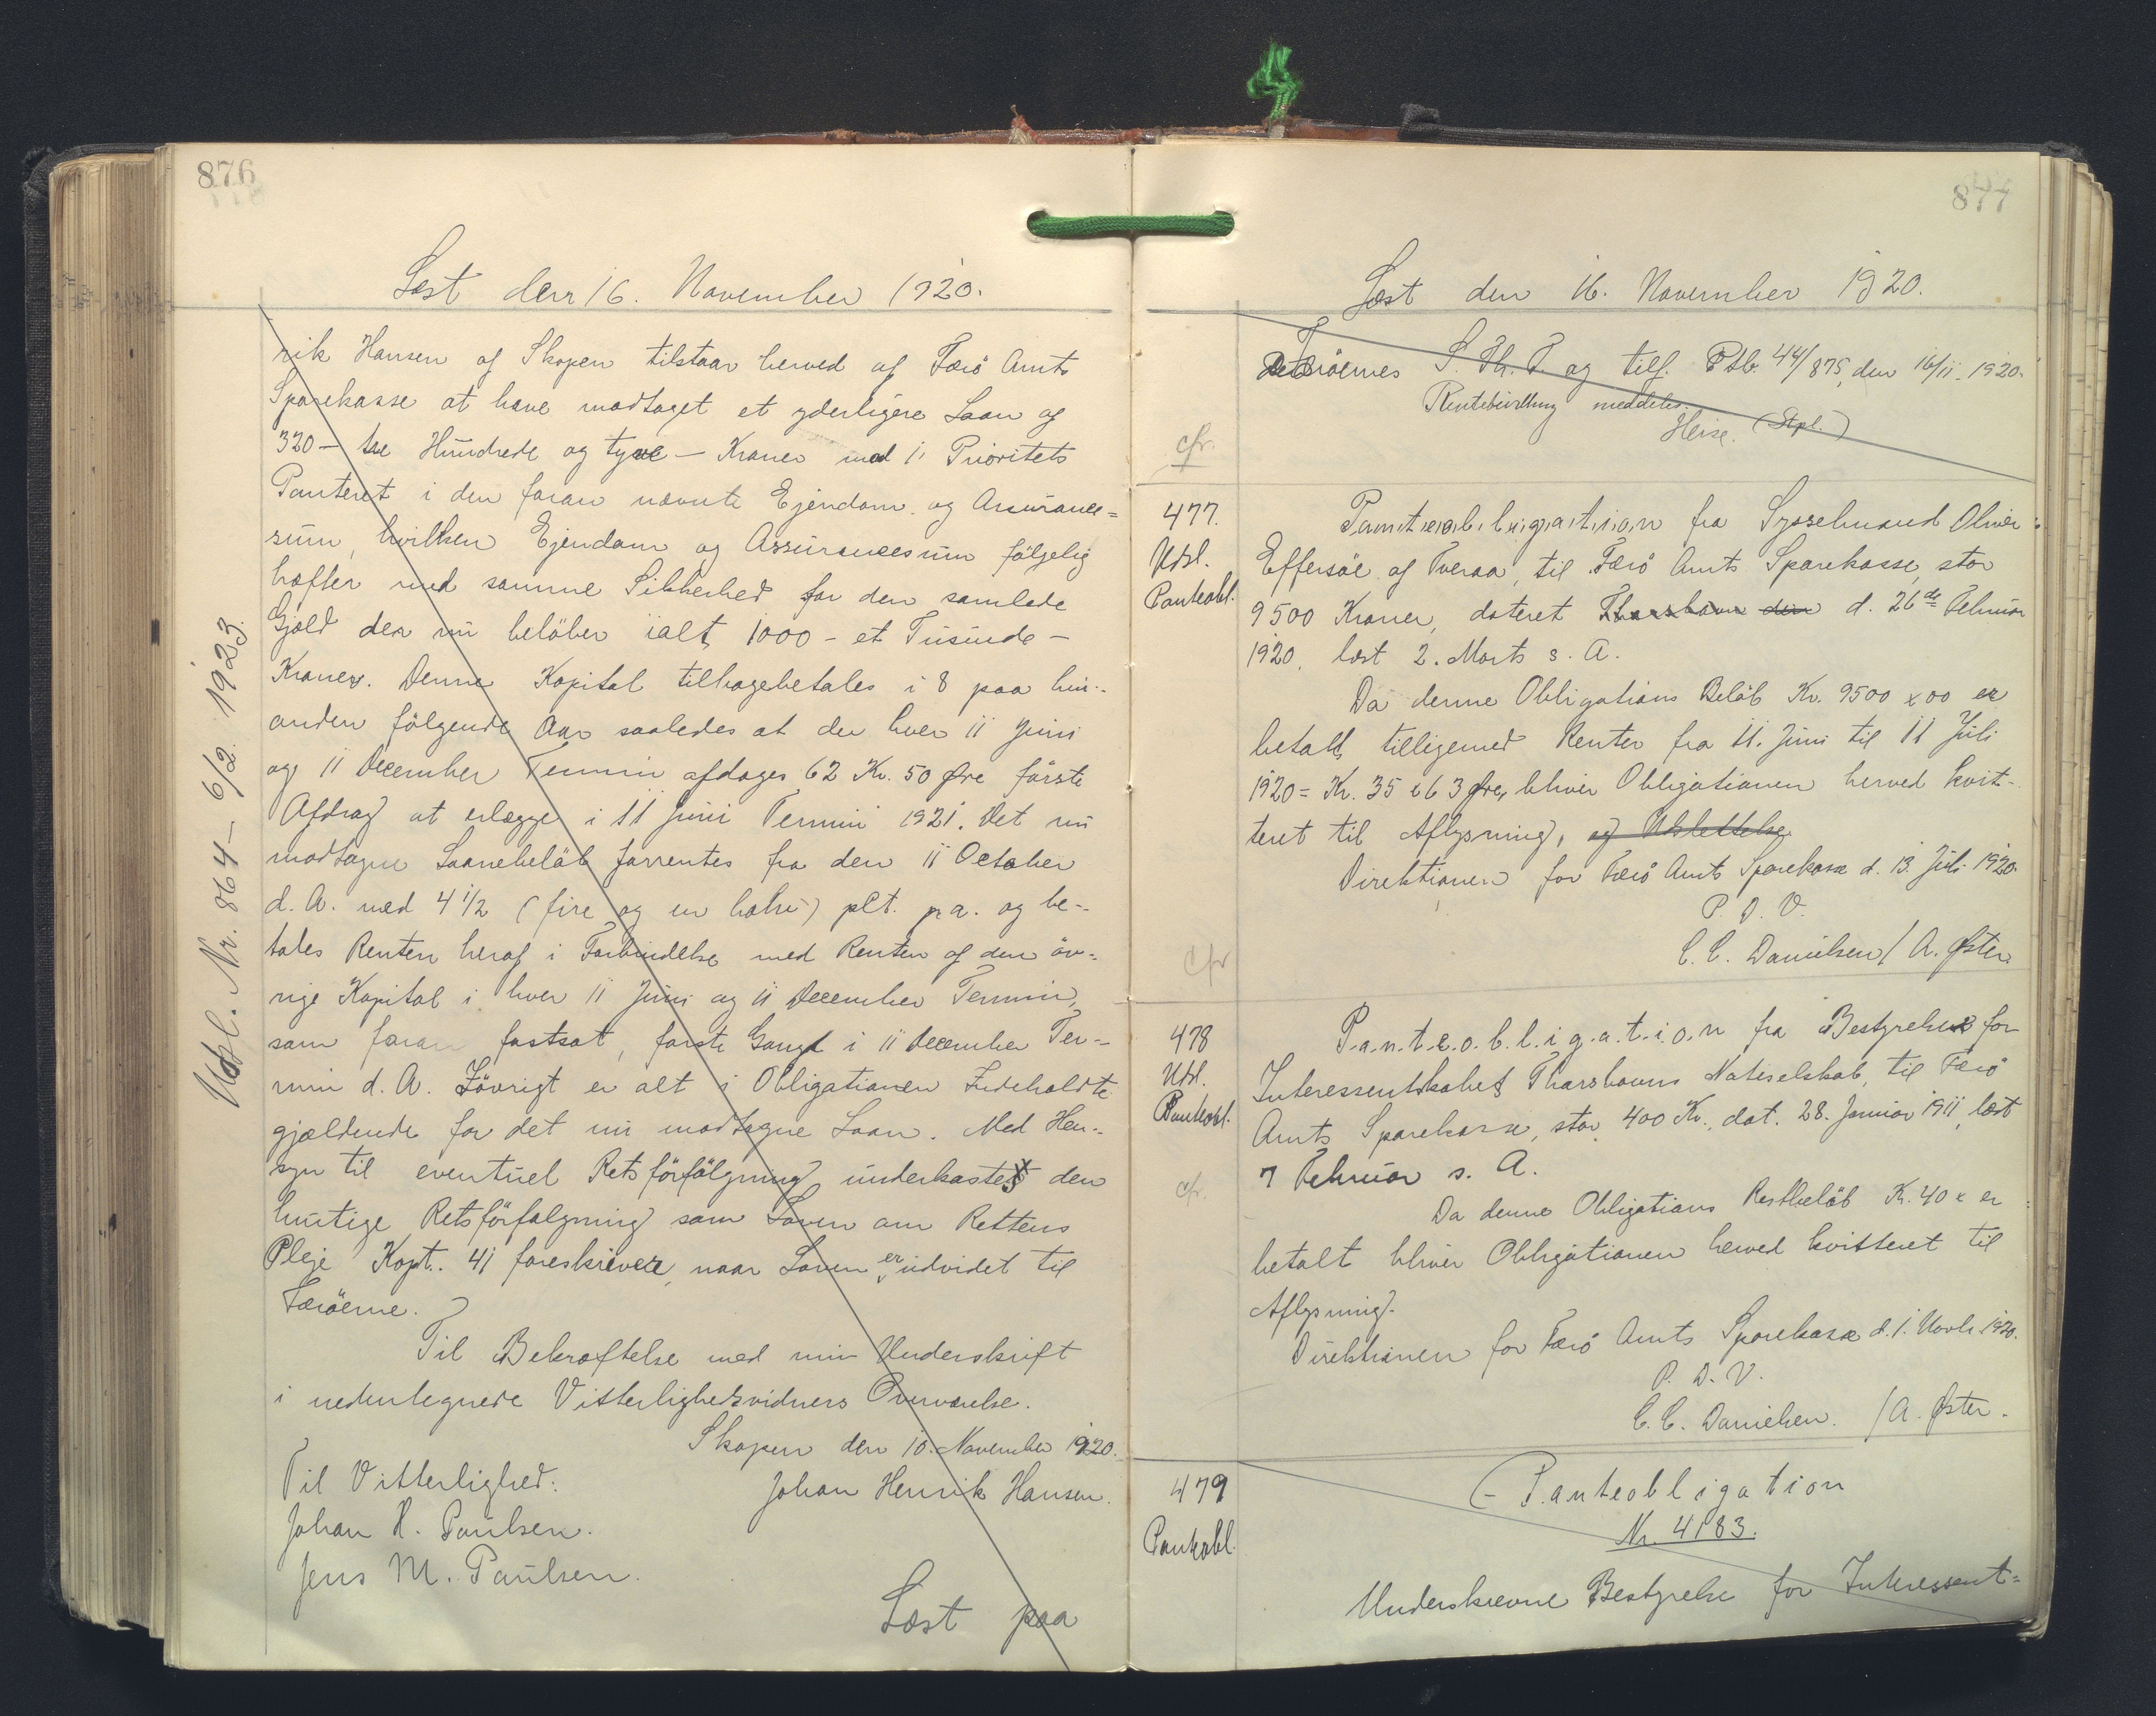 876
Læst den 16. November 1920.
rik Hansen af Skopen tilstaar herved af Færö Amts
Sparekasse at have modtaget et yderligere Laan af
320 – tre Hundrede og tyve – Kroner mod 1' Prioritets
Panteret i den foran nævnte Ejendom og Assurance=
sum, hvilken Ejendom og Assurancesum fölgelig
hæfter med samme Sikkerhed for den samlede
Gjæld der nu belöber ialt 1000 – et Tusinde –
Kroner. Denne Kapital tilbagebetales i 8 paa hin-
anden fölgende Aar saaledes at der hver 11 Juni
og 11 December Termin afdages 62 Kr. 50 Øre förste
Afdrag at erlægge i 11 Juni Termin 1921. Det nu
modtagne Laanebelöb forrentes fra den 11 October
d. A. med 4 1/2 (fire og en halv) pCt. p.a. og be-
tales Renten heraf i Forbindelse med Renten af den öv-
rige Kapital i hver 11 Juni og 11 December Termin,
som foran fastsat, forste Gang i 11 December Ter-
min d. A. Iövrigt er alt i Obligationen Indeholdte
gjældende for det nu modtagne Laan. Med Hen-
syn til eventuel Retsförfölgning underkastes den
hurtige Retsförfolgning som Loven om Rettens
Pleje Kapt. 41 foreskriver, naar Loven er udvidet til
Færöerne.
Til Bekræftelse med min Underskrift
i nedentegnede Vitterlighedsvidners Overværelse.
Skopen den 10. November 1920.
Til Vitterlighed: Johan Henrik Hansen.
Johan H. Poulsen.
Jens M. Paulsen.
Læst paa
Udsl. Nr. 864 – 6/2. 1923.
877
Læst den 16. November 1920.
Færöernes S. Th. T. og tilf. Ptb. 44/875, den 16/11 1920.
meddeles.
Heise. (Stpl.)
cfr.
477.
Udsl.
Panteobl.
Panteobligation fra Sysselmand Oliver
Effersöe af Tveraa, til Færö Amts Sparekasse, stor
9500 Kroner, dateret Thorshavn den d. 26de Februar
1920, læst 2. Marts s. A.
Da denne Obligations Belöb Kr. 9500 x 00 er
betalt tilligemed Renter fra 11. Juni til 11 Juli
1920 = Kr. 35 x 63 Øre, bliver Obligationen herved kvit-
teret til Aflysning, og Udslettelse.
Direktionen for Færö Amts Sparekasse d. 13. Juli 1920.
P. D. V.
C. C. Danielsen / A. Øster.
cfr
478
Udsl.
Panteobl.
cfr.
Panteobligation fra Bestyrelsen for
Interessentskabet Thorshavns Notesel​skab, til Færö
Amts Sparekasse, stor 400 Kr., dat. 28. Januar 1911, læst
7 Februar s. A.
Da denne Obligations Restbelöb Kr. 40 x er
betalt bliver Obligationen herved kvitteret til
Aflysning.
Direktionen for Færö Amts Sparekasse d. 1. Novbr. 1920.
P. D. V.
C. C. Danielsen. / A. Øster.
479
Panteobl.
Panteobligation
Nr. 4183.
Underskrevne Bestyrelse for Interessent=